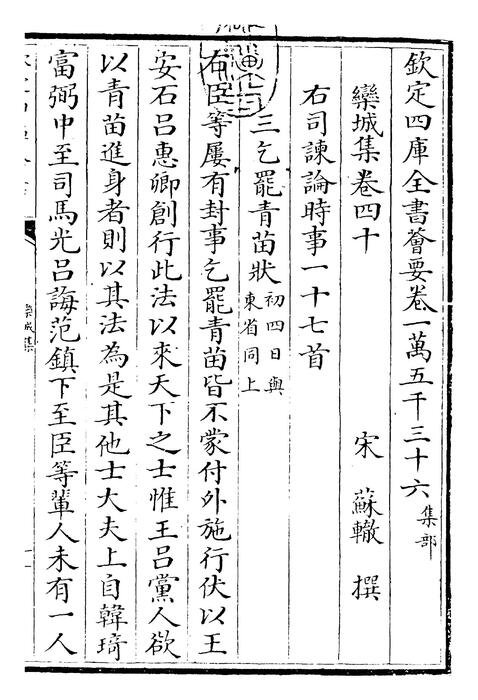 欽定四庫全書薈要卷一萬五千三十六集部
欒城集卷四十
宋 蘇轍 撰
右司諫論時事一十七首
三乞罷青苗狀初四日與東省同上
右臣等屢有封事乞罷青苗皆不蒙付外施行伏以王
安石呂惠卿創行此法以來天下之士惟王呂黨人欲
以青苗進身者則以其法為是其他士大夫上自韓琦
富弼中至司馬光呂誨范鎮下至臣等輩人未有一人
欒城集